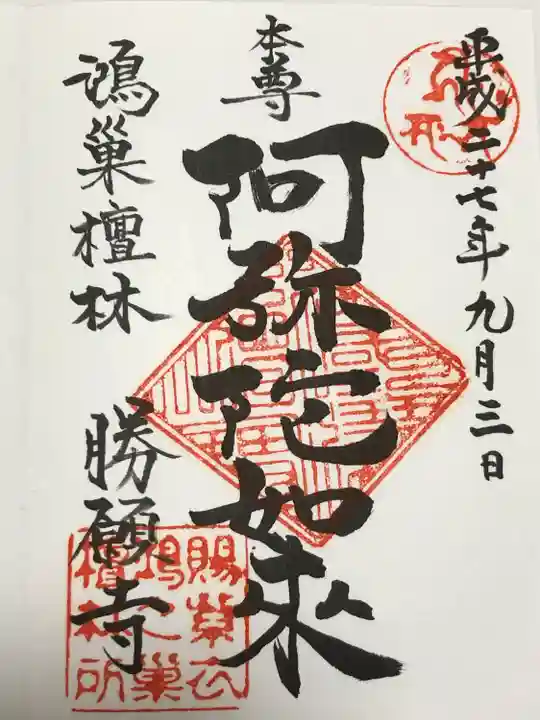 平成二十七年九月三日
本尊
阿弥陀如来
鴻巣檀林
勝願寺
賜紫衣
鴻之巣
檀林所